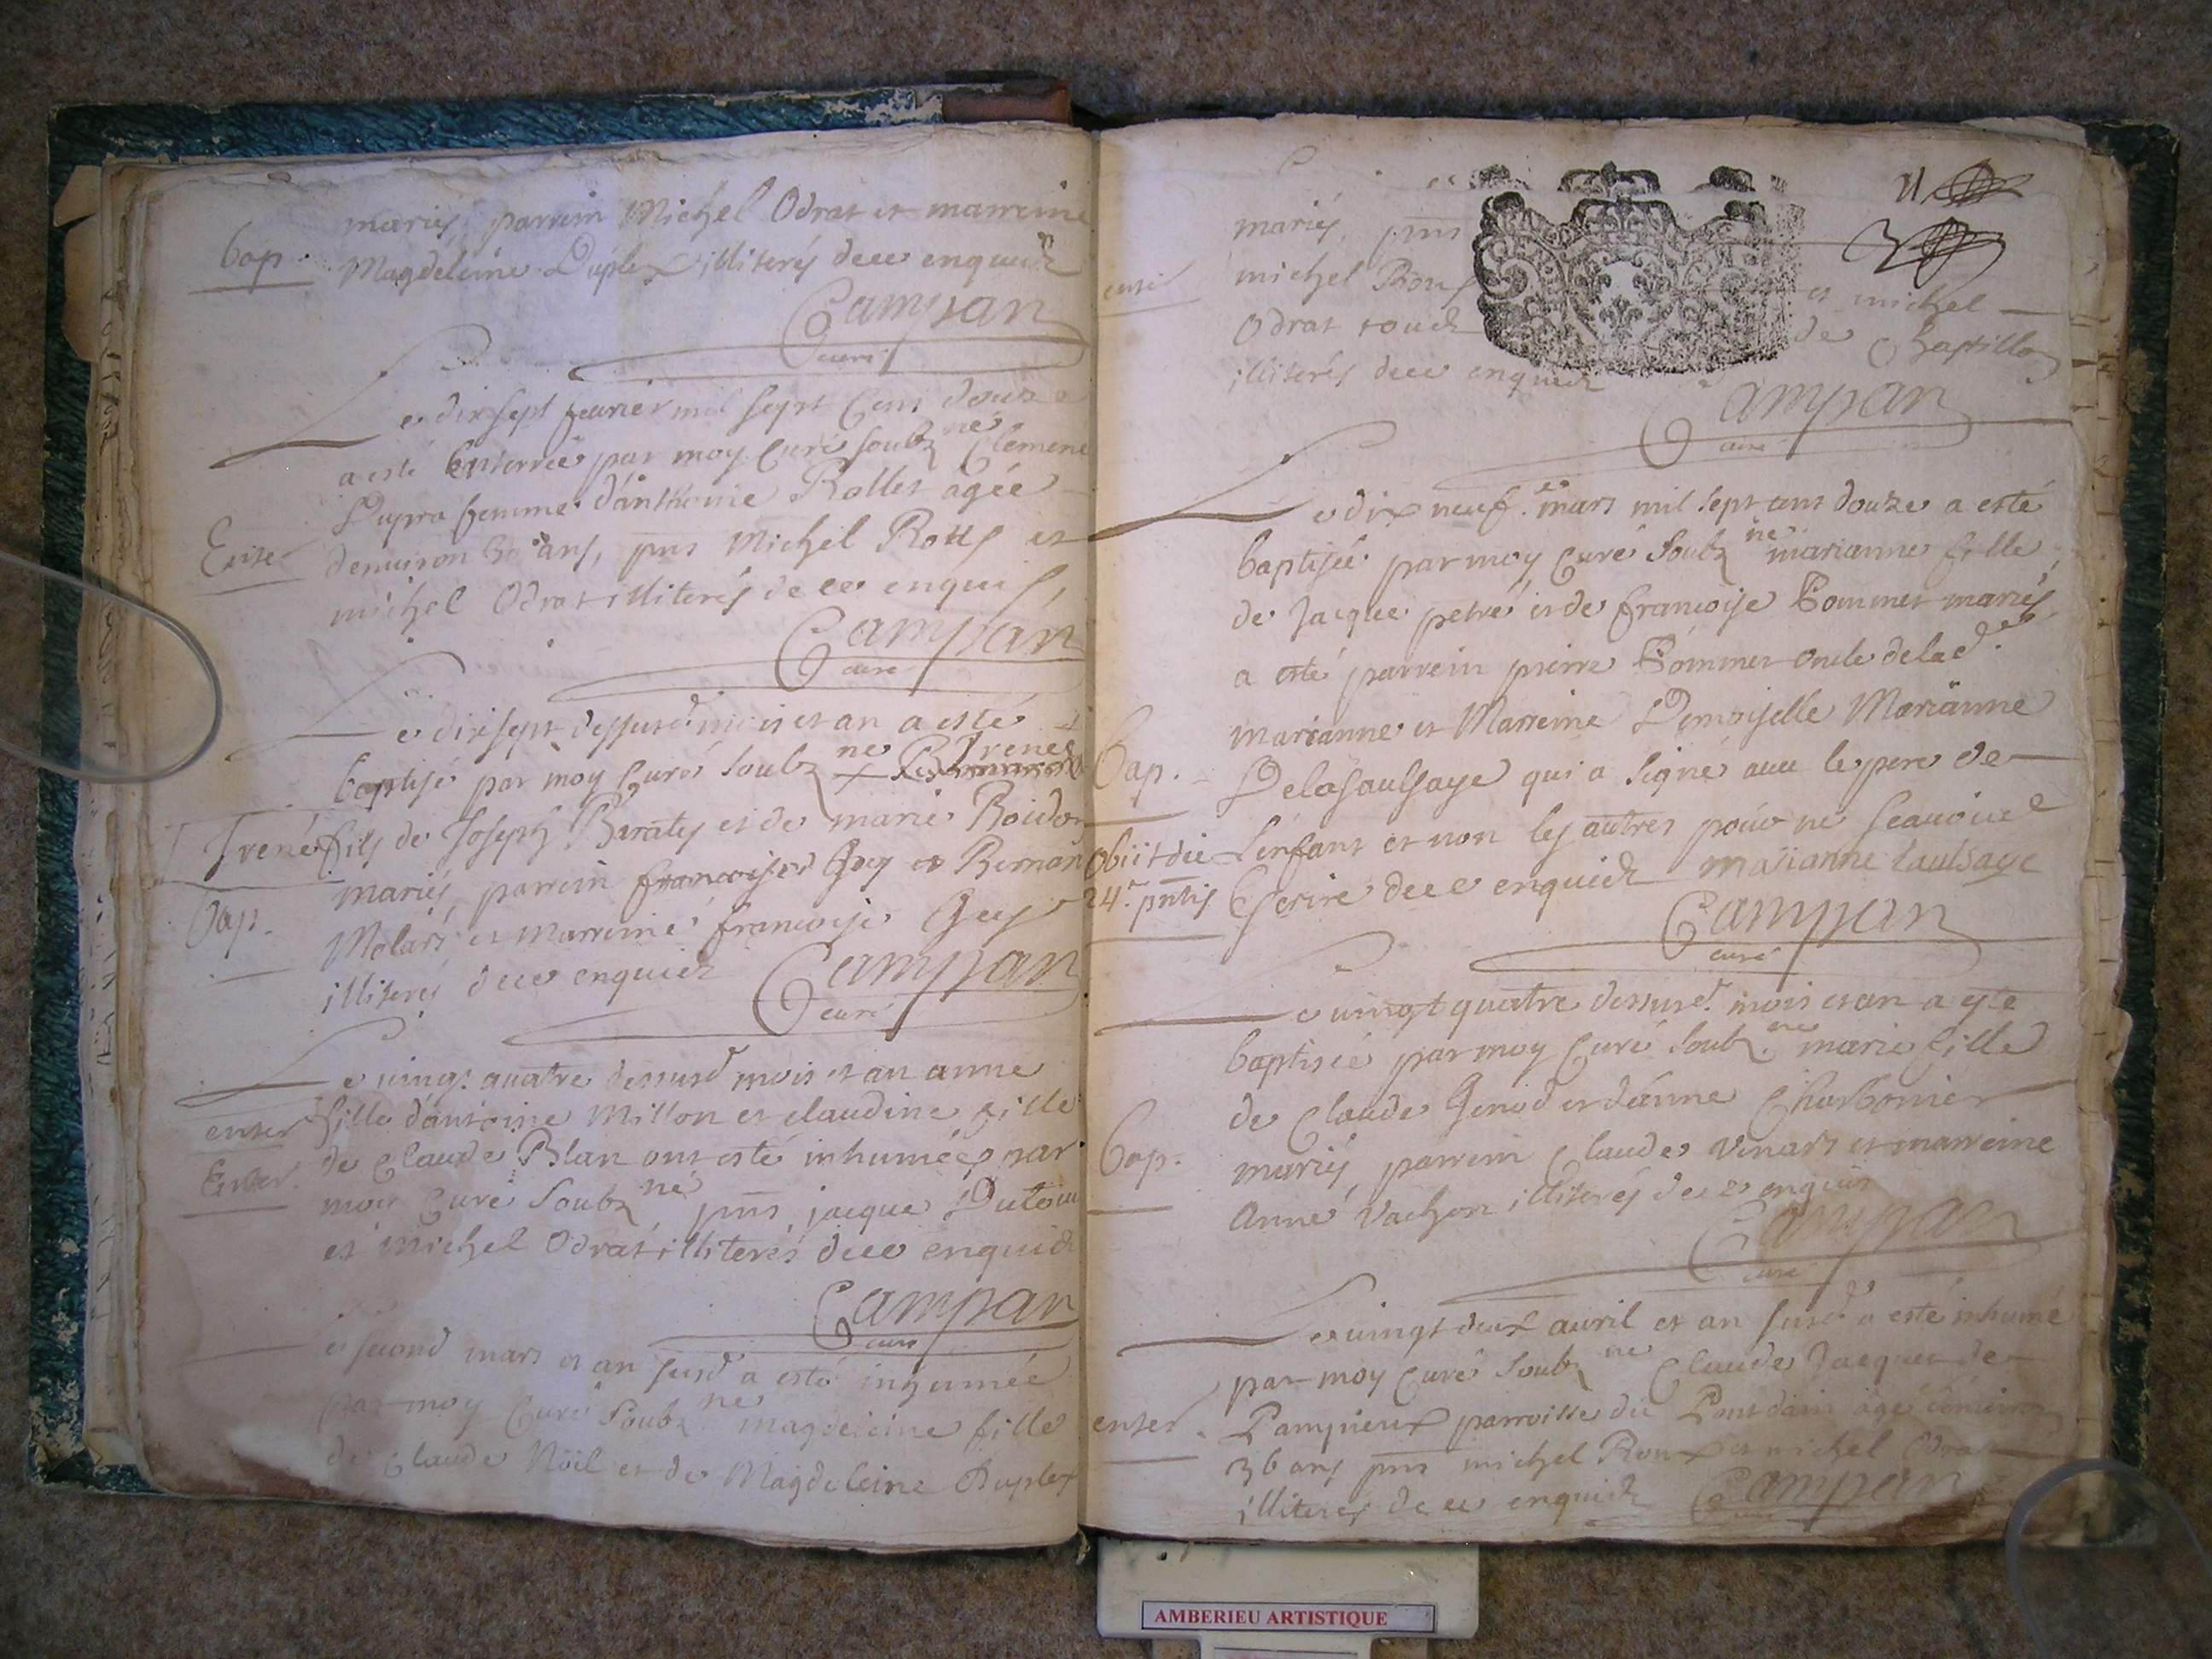 mariés, parrein Michel Odrat et marreine
bap. Magdeleine Duplex illiterés de ce enquis
Campan
curé
Le dixsept feurier mil sept cens douze
a esté Enterreé par moy Curé soubz né Clemene
Dupra femme d'anthoine Rollet agée
Enter denuiron ans, pns Michel et
michel Odrat illiterés de ce enquis
Campan
curé
Le dixsept dessusd mois et an a esté
baptisé par moy Curé soubz né Irenee
Irené fils de Joseph Baraty et de marie Roidor
bap. mariés, parrein françoise Guy et Bernar
Molard et marreine françoise Guy
illiterés de ce enquis Campan
curé
Le uingt quatre dessusd mois et an anne
enter fille d'antoine Millon et claudine fille
Enter. de Claude Blan ont esté inhumées par
moy Curé soubz né pns jacque
et michel Odrat illiterés de ce enquis
Campan
curé
Le second mars et an susd a esté inhumée
par moy Curé soubz né magdeleine fille
de Claude Noil et de Magdeleine Duplex
11
mariés, pns
michel Roux et michel
Odrat de Chastillon
illiterés de ce enquis
Campan
curé
Le dix neuf mars mil sept cens douze a esté
baptiseé par moy Curé soubz né marianne fille
de Jacque petré et de françoise Pommet mariés
a esté parrein pierre Pommet oncle de lad
marianne et Marreine Demoiselle Marianne
bap. Delasaulsaye qui a signé auec le pere de
obiit die L'enfant et non les autres pour ne scauoir
24 pntis Escrire de ce enquis marianne saulsaye
Campan
curé
Le uingt quatre dessusd. mois et an a esté
baptisée par moy Curé soubz né marie fille
de Claude Genod et d'anne Charbonier
bap. mariés, parrein Claude Venard et marreine
Anne Vachon illiterés de ce enquis
Campan
curé
Le uingt deux auril et an susd a esté inhumé
par moy Curé soubz né Claude Jacquet de
enter. Pampieux parroisse du Pont dain agé denuiron
36 ans pns michel Roux et michel Odrat
illiterés de ce enquis Campan
AMBERIEU ARTISTIQUE